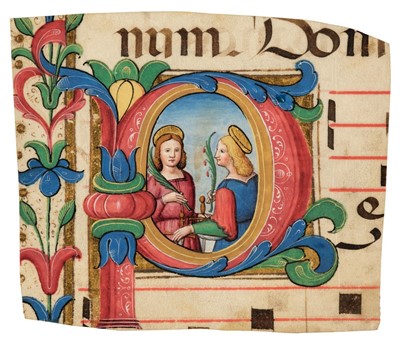 num. Dom
P e